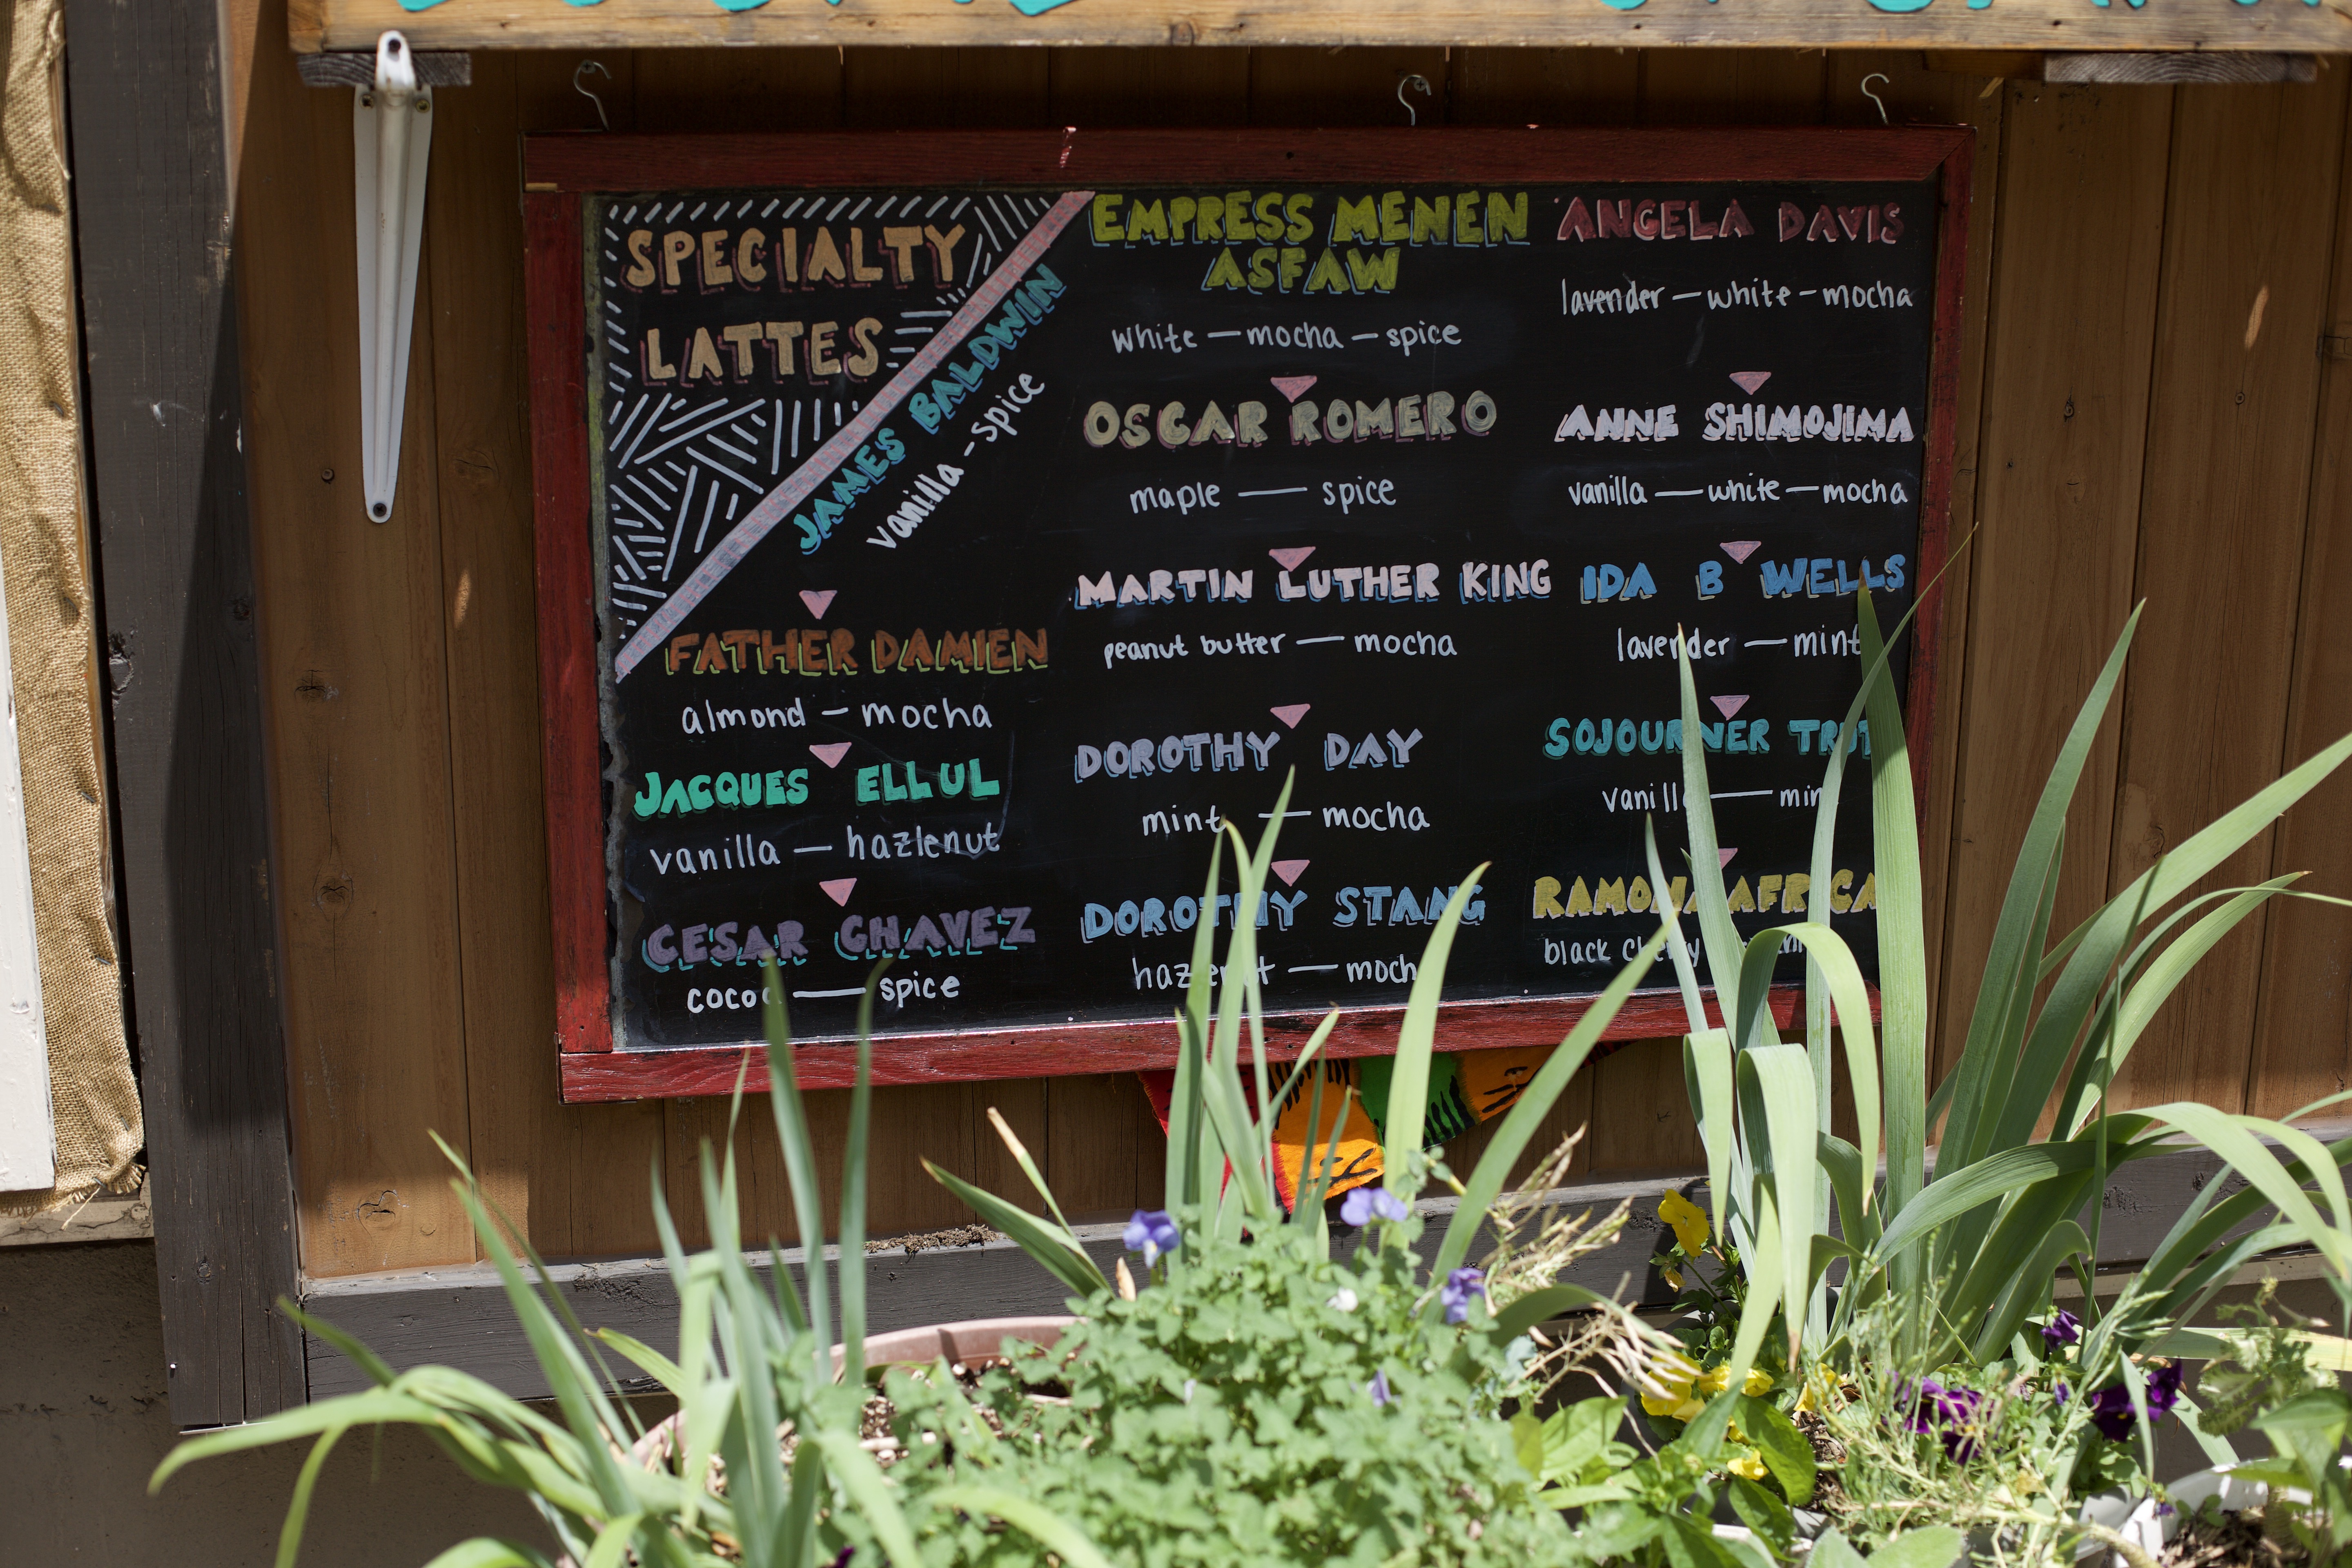 SPECIALTY
LATTES
JAMES BALDWIN
vanilla - spice
FATHER DAMIEN
almond - mocha
JACQUES ELLUL
vanilla — hazlenut
CESAR CHAVEZ
cocoa — spice
EMPRESS MENEN
ASFAW
white — mocha — spice
OSCAR ROMERO
maple — spice
MARTIN LUTHER KING
peanut butter — mocha
DOROTHY DAY
mint — mocha
DOROTHY STANG
hazlenut — mocha
ANGELA DAVIS
lavender — white - mocha
ANNE SHIMOJIMA
vanilla — white — mocha
IDA B WELLS
lavender — mint
SOJOURNER TRUTH
vanilla — mint
RAMONA AFRICA
black cherry —